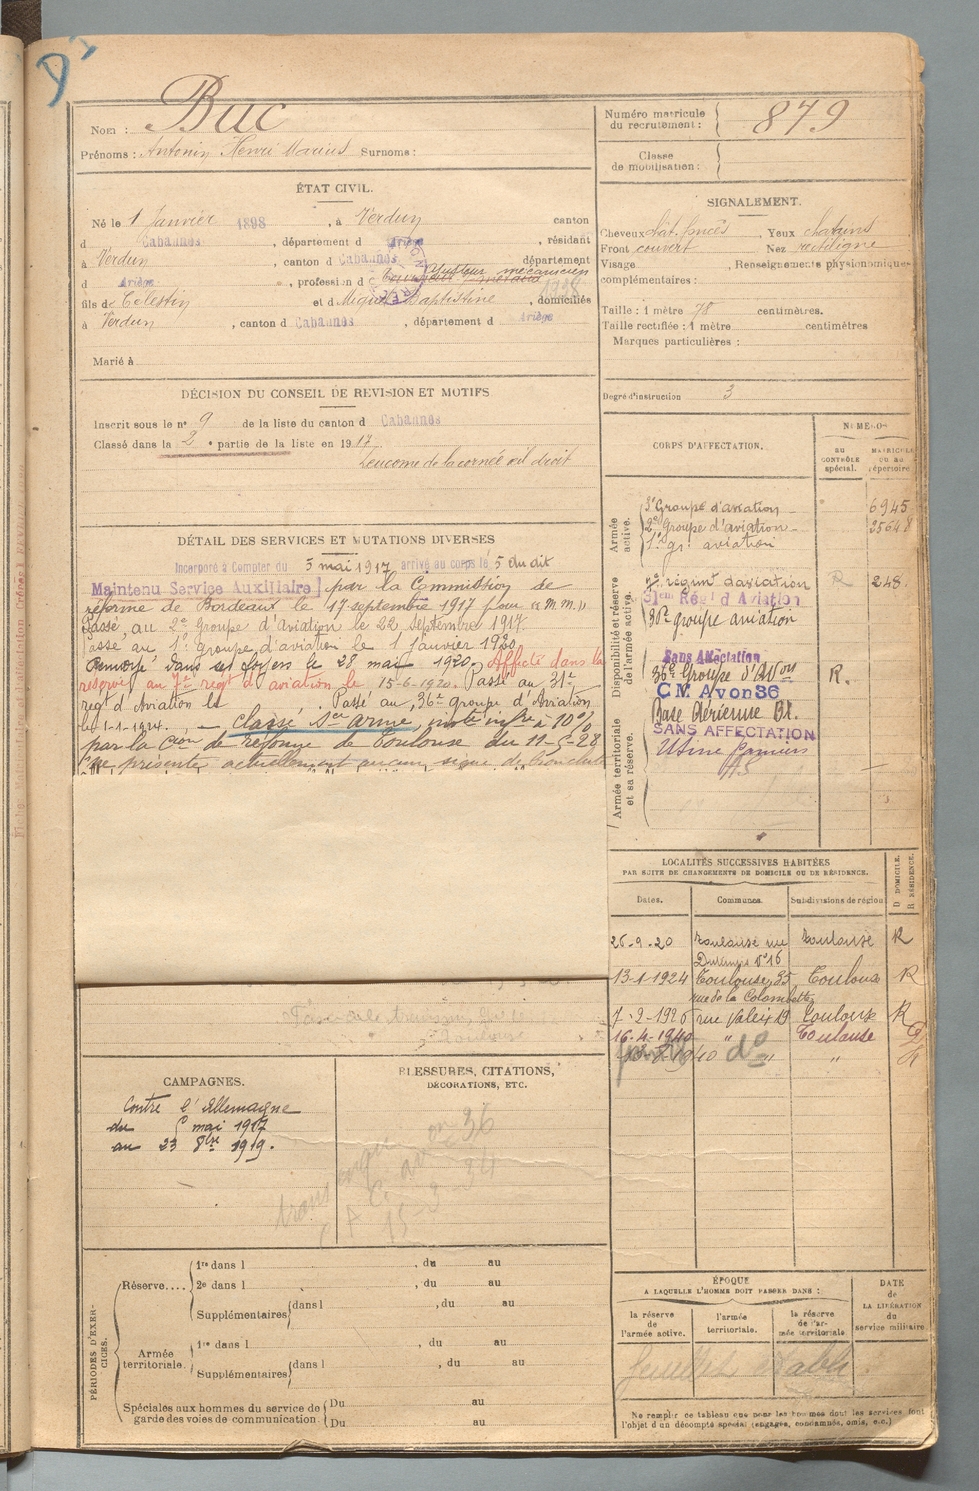 Nom : Buc
Prénoms : Antonin Henri Marius Surnoms :
Numéro matricule du recrutement : 879
Classe de mobilisation :
ÉTAT CIVIL.
Né le 1 Janvier 1898, à Verdun canton
d Cabannes, département d Ariège, résidant
à Verdun, canton d Cabannes, département
d Ariège, profession d ajusteur mécanicien
fils de Célestin et d Miquel Baptistine, domiciliés
à Verdun, canton d Cabannes, département d Ariège
Marié à
SIGNALEMENT.
Cheveux chât. foncés Yeux chatains
Front couvert Nez rectiligne
Visage , Renseignements physionomiques
complémentaires :
Taille : 1 mètre 78 centimètres.
Taille rectifiée : 1 mètre centimètres
Marques particulières :
Degré d'instruction 3
DÉCISION DU CONSEIL DE REVISION ET MOTIFS
Inscrit sous le n° 9 de la liste du canton d Cabannes
Classé dans la 2e partie de la liste en 1917
Leucome de la cornée œil droit
DÉTAIL DES SERVICES ET MUTATIONS DIVERSES
Incorporé à Compter du 5 mai 1917 arrivé au corps le 5 du dit
Maintenu Service Auxiliaire par la Commission de
réforme de Bordeaux le 17 septembre 1917 pour "m.m."
Passé, au 2e groupe d'Aviation le 22 Septembre 1917
Passé au 1er groupe d'aviation le 1 Janvier 1920
Renvoyé dans ses foyers le 28 mai 1920. Affecté dans la
réserve au 7e regt d'aviation le 15-6-1920. Passé au 31e
regt d'Aviation le Passé au 36e groupe d'Aviation
le 1-1-1924. — Classé Sce armé, invté infre à 10%
par la Con de réforme de Toulouse du 11-5-28
ne présente actuellement aucun signe de
CORPS D'AFFECTATION.
NUMÉROS
AU CONTRÔLE spécial.
MATRICULE ou au répertoire
Armée active.
3e Groupe d'aviation 6945
2e Groupe d'aviation
1er gr. aviation
Disponibilité et réserve de l'armée active.
7e régimt d'aviation R 248.
31em Régt d'Aviation
36e groupe aviation
Sans Affectation
36e Groupe d'Avon R.
C M Avon 36
Base Aérienne
Armée territoriale et sa réserve.
SANS AFFECTATION
Usine Pamiers
A S
LOCALITÉS SUCCESSIVES HABITÉES
PAR SUITE DE CHANGEMENTS DE DOMICILE OU DE RÉSIDENCE.
D DOMICILE. R RÉSIDENCE.
Dates. Communes. Subdivisions de région
26-9-20 Toulouse rue n°16 Toulouse R
13-1-1924 Toulouse, 35 rue de la Colombette Toulouse R
7-2-1926 rue Valeix 19 Toulouse R
16-4-1940 " Toulouse D
1940 do " " R
CAMPAGNES.
Contre l'Allemagne
du 5 mai 1917
au 23 8bre 1919.
BLESSURES, CITATIONS,
DÉCORATIONS, ETC.
36
15-3-34
PÉRIODES D'EXERCICES.
Réserve.... 1re dans l , du au
2e dans l , du au
Supplémentaires dans l , du au
Armée territoriale. 1re dans l , du au
Supplémentaires dans l , du au
Spéciales aux hommes du service de garde des voies de communication. Du au
Du au
ÉPOQUE
A LAQUELLE L'HOMME DOIT PASSER DANS :
la réserve de l'armée active.
l'armée territoriale.
la réserve de l'armée territoriale
DATE de LA LIBÉRATION du service militaire.
Ne remplir ce tableau que pour les hommes dont les services font
l'objet d'un décompte spécial (engagés, condamnés, omis, etc.)